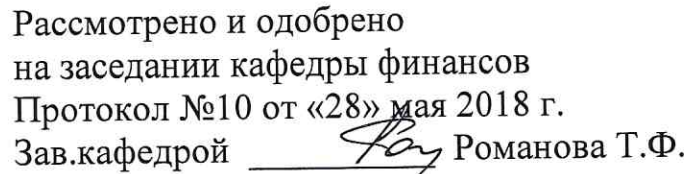 Рассмотрено и одобрено
на заседании кафедры финансов
Протокол №10 от «28» мая 2018 г.
Зав.кафедрой ____________ Романова Т.Ф.